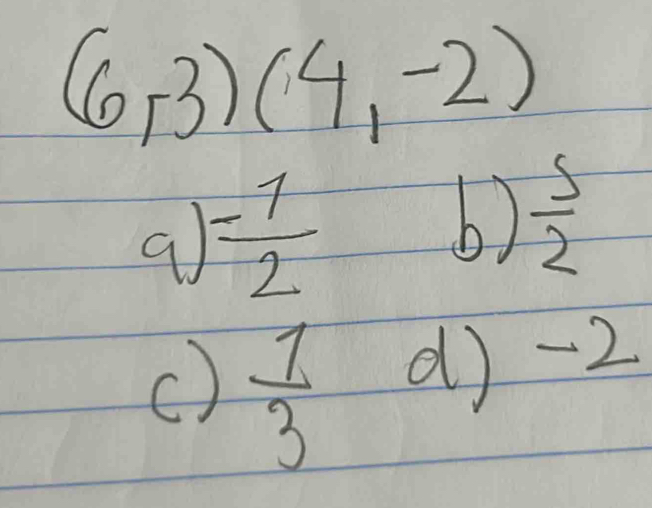 (6,-3) (4, -2)
a) -1/2 b) 5/2
c) 1/3 d) -2